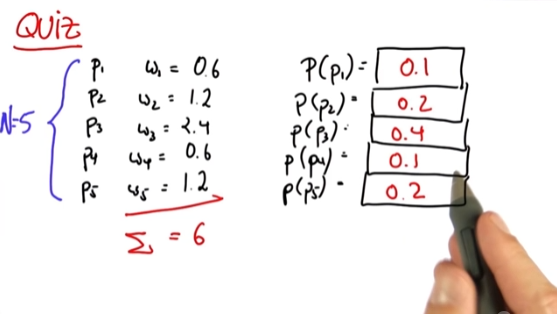 QUIZ
N=5
p₁ ω₁ = 0.6
p₂ ω₂ = 1.2
p₃ ω₃ = 2.4
p₄ ω₄ = 0.6
p₅ ω₅ = 1.2
Σ = 6
P(p₁) = 0.1
P(p₂) = 0.2
P(p₃) = 0.4
P(p₄) = 0.1
P(p₅) = 0.2